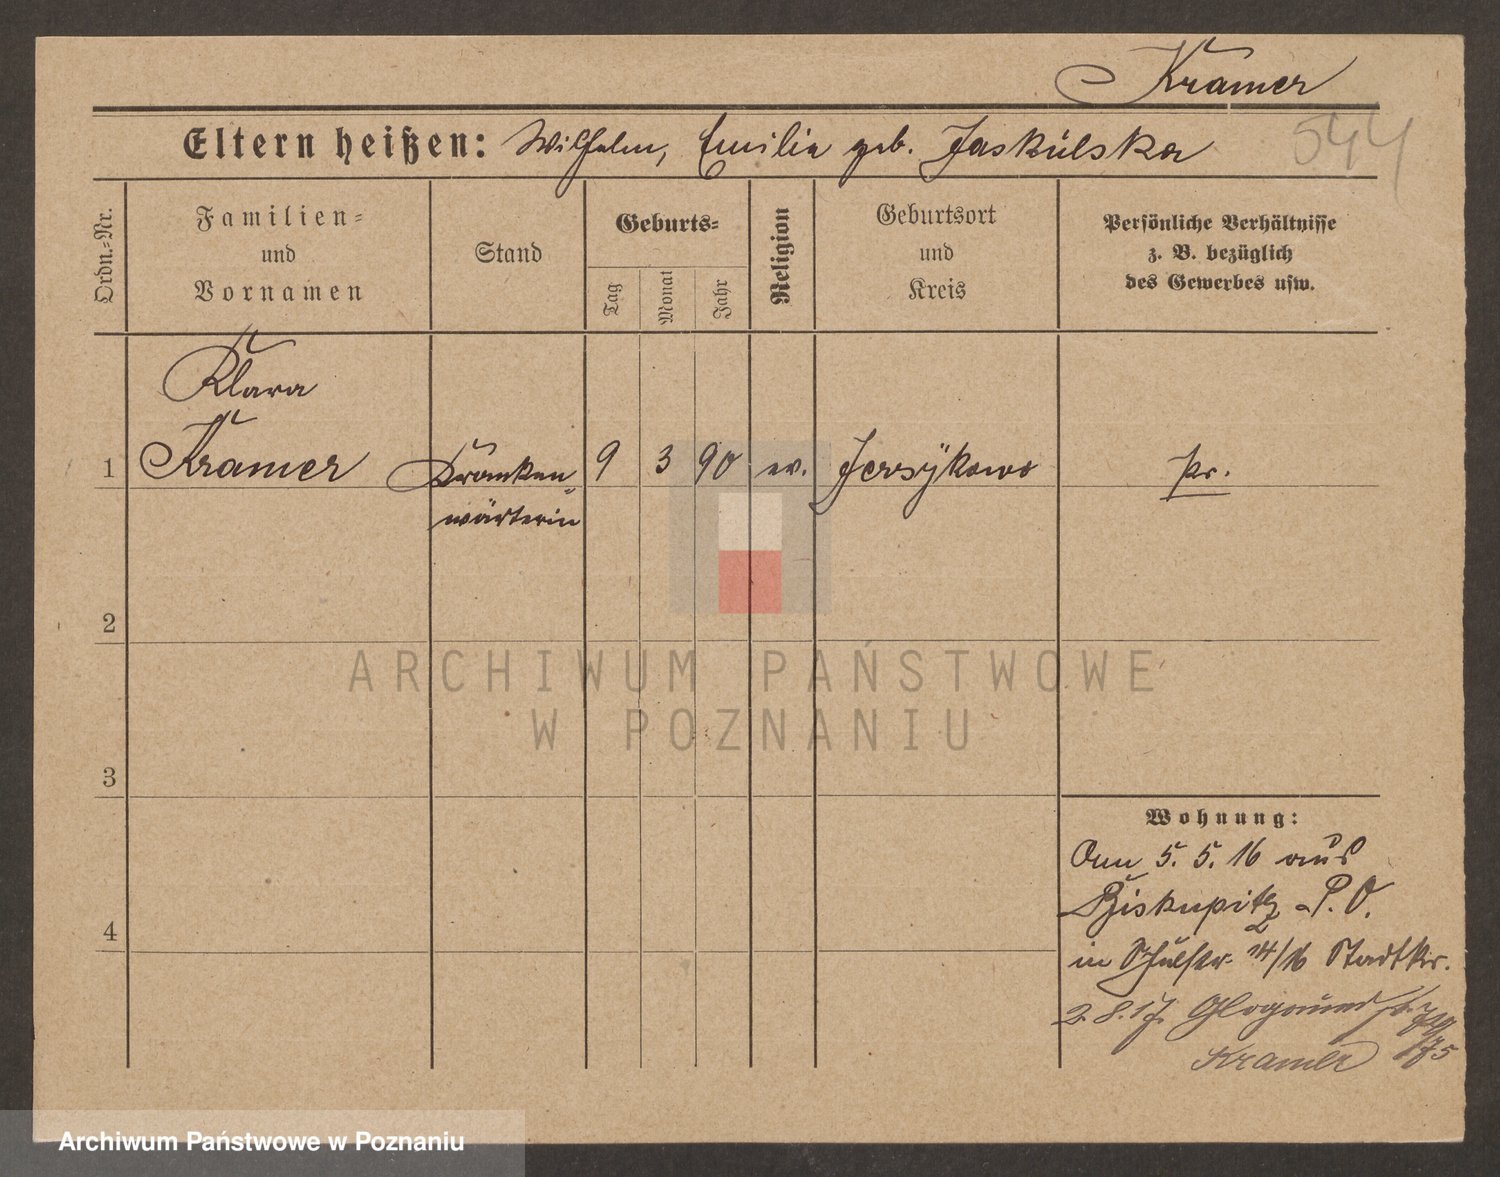 Kramer
Eltern heißen: Wilhelm, Emilie geb. Jaskulska
544
Ordn.-Nr.
Familien-
und
Vornamen
Stand
Geburts-
Tag
Monat
Jahr
Religion
Geburtsort
und
Kreis
Persönliche Verhältnisse
z. B. bezüglich
des Gewerbes usw.
Klara
1 Kramer Kranken- 9 3 90 ev. Jersykowo pr.
wärterin
2
3
4
Wohnung:
Am 5. 5. 16 aus
Biskupitz P. O.
in Schulstr. 14/16 Stadtkr.
2. 8. 17. Glogauerstr.
Kramer
ARCHIWUM PAŃSTWOWE
W POZNANIU
Archiwum Państwowe w Poznaniu